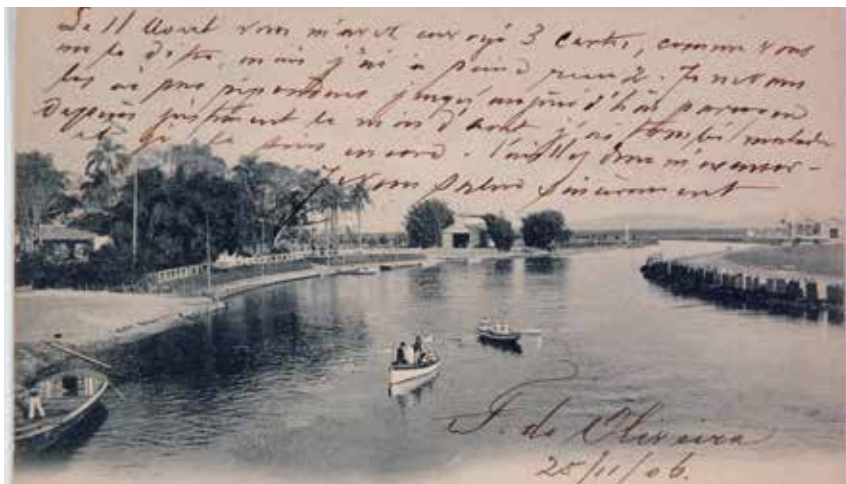 Le 11 Aout vous m'avez envoyé 3 cartes, comme vous
me le dites, mais j'ai à peine recu 2. Je ne vous
les ai pas répondues jusqu'aujourd'hui parceque
depuis justement le mois d'Aout j'ai tombé malade
et je le suis encore. Veuillez donc m'excuser-
Je vous salue sincèrement
F. de Oliveira
25/11/06.